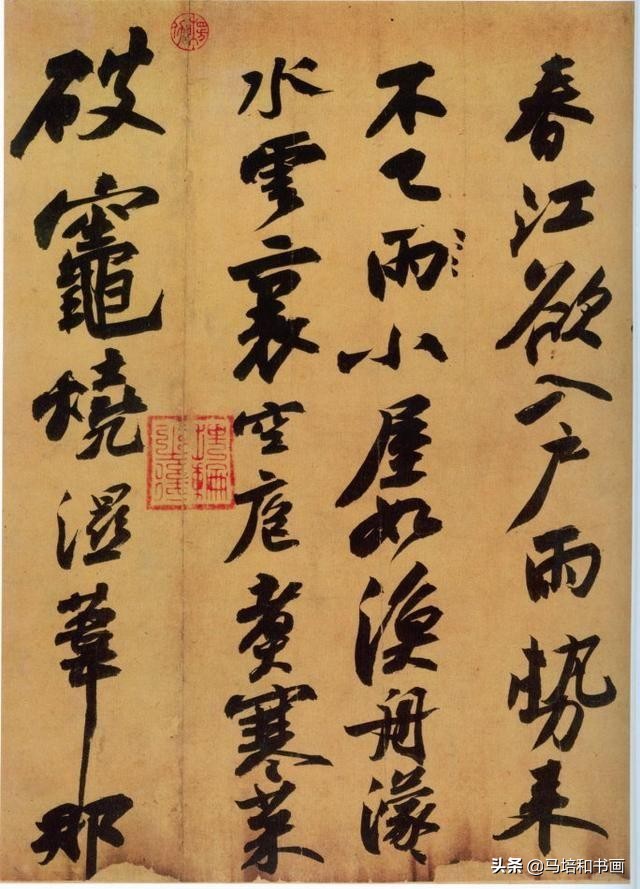 春江欲入戶雨勢来
不已雨小屋如漁舟濛〻
水雲裏空庖煮寒菜
破竈燒濕葦那
头条 @马培和书画